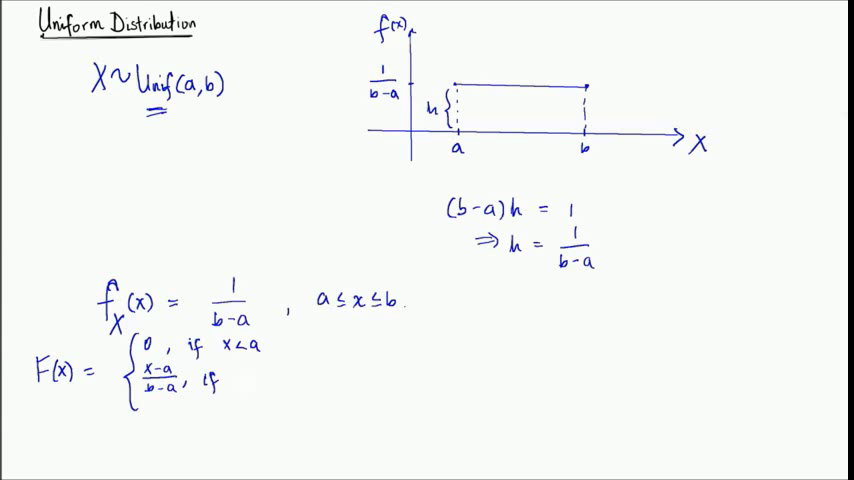 Uniform Distribution
X ~ Unif(a,b)
f(x)
1/(b-a)
h {
a b X
(b-a)h = 1
⇒ h = 1/(b-a)
f_X(x) = 1/(b-a) , a ≤ x ≤ b.
F(x) = { 0 , if x < a
(x-a)/(b-a), if